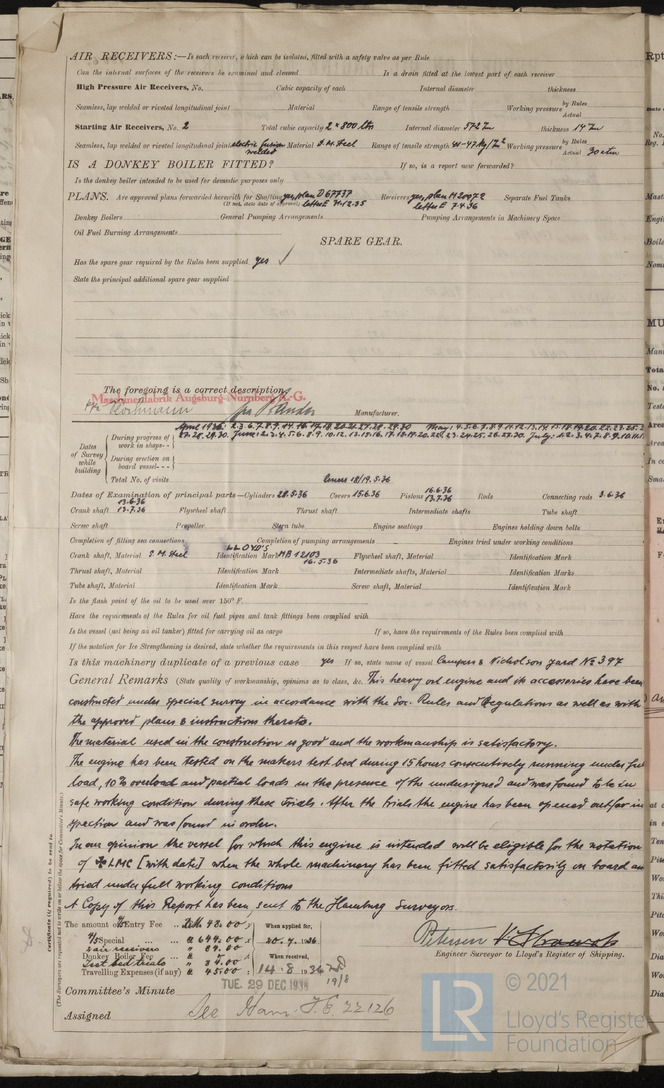 AIR RECEIVERS:—Is each receiver, which can be isolated, fitted with a safety valve as per Rule
Can the internal surfaces of the receivers be examined and cleaned Is a drain fitted at the lowest part of each receiver
High Pressure Air Receivers, No. Cubic capacity of each Internal diameter thickness
Seamless, lap welded or riveted longitudinal joint Material Range of tensile strength Working pressure by Rules Actual
Starting Air Receivers, No. 2 Total cubic capacity 2 × 800 ltrs Internal diameter thickness
Seamless, lap welded or riveted longitudinal joint electric fusion welded Material S.M. Steel Range of tensile strength 41-47 kg/ Working pressure by Rules Actual 30 atm
IS A DONKEY BOILER FITTED? If so, is a report now forwarded?
Is the donkey boiler intended to be used for domestic purposes only
PLANS. Are approved plans forwarded herewith for Shafting yes, plan D67737 Receivers yes, plan M20072 Separate Fuel Tanks
(If not, state date of approval) letter E 4-12-35 letter E 7.4.36
Donkey Boilers General Pumping Arrangements Pumping Arrangements in Machinery Space
Oil Fuel Burning Arrangements
SPARE GEAR.
Has the spare gear required by the Rules been supplied yes ✓
State the principal additional spare gear supplied
The foregoing is a correct description,
Maschinenfabrik Augsburg-Nürnberg A.-G.
Manufacturer.
Dates of Survey while building
During progress of work in shops-- April 1936: 2.3.6.7.8.9.
During erection on board vessel--- June: July:
Total No. of visits
Covers 18/19.5.36
Dates of Examination of principal parts—Cylinders 28.5.36 Covers 15.6.36 Pistons 16.6.36 13.7.36 Rods Connecting rods 3.6.36
Crank shaft 13.6.36 13.7.36 Flywheel shaft Thrust shaft Intermediate shafts Tube shaft
Screw shaft Propeller Stern tube Engine seatings Engines holding down bolts
Completion of fitting sea connections Completion of pumping arrangements Engines tried under working conditions
Crank shaft, Material S.M. Steel Identification Mark LLOYD'S MB 12103 16.5.36 Flywheel shaft, Material Identification Mark
Thrust shaft, Material Identification Mark Intermediate shafts, Material Identification Marks
Tube shaft, Material Identification Mark Screw shaft, Material Identification Mark
Is the flash point of the oil to be used over 150° F.
Have the requirements of the Rules for oil fuel pipes and tank fittings been complied with
Is the vessel (not being an oil tanker) fitted for carrying oil as cargo If so, have the requirements of the Rules been complied with
If the notation for Ice Strengthening is desired, state whether the requirements in this respect have been complied with
Is this machinery duplicate of a previous case yes If so, state name of vessel Campers & Nicholson yard No 397
General Remarks (State quality of workmanship, opinions as to class, &c. This heavy oil engine and its accessories have been
constructed under special survey in accordance with the Soc. Rules and Regulations as well as with
the approved plans & instructions thereto.
The material used in the construction is good and the workmanship is satisfactory.
The engine has been tested on the makers test bed during 15 hours consecutively running under full
load, 10% overload and partial loads in the presence of the undersigned and was found to be in
safe working condition during these trials. After the trials the engine has been opened out for in
spection and was found in order.
In our opinion the vessel for which this engine is intended will be eligible for the notation
of ✠ LMC [with date] when the whole machinery has been fitted satisfactorily on board and
tried under full working conditions
A Copy of this Report has been sent to the Hamburg Surveyors.
The amount of Entry Fee .. 48.00 : When applied for,
Special ... 20.7.1936
air receivers
Donkey Boiler Fee When received,
test bed trials
Travelling Expenses (if any) 45.00 14.8.1936
19/8
Petersen
Engineer Surveyor to Lloyd's Register of Shipping.
Committee's Minute TUE. 29 DEC 1936
Assigned See Ham. F.E. 22126
Certificate (if required) to be sent to
(The Surveyors are requested not to write on or below the space for Committee's Minute.)
LR © 2021
Lloyd's Register
Foundation